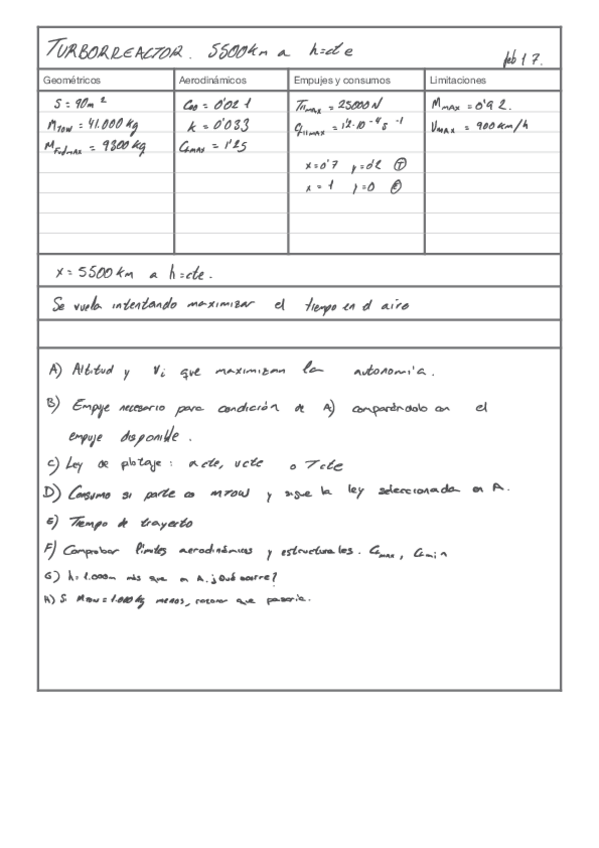 TURBORREACTOR. 5500km a h=cte feb 17.
Geométricos Aerodinámicos Empujes y consumos Limitaciones
S = 90m² C_D0 = 0'021 T_11MAX = 25000 N M_MAX = 0'92.
M_TOW = 41.000 kg k = 0'033 = 1'2·10⁻⁴ s⁻¹ V_MAX = 900 km/h
M_FuelMAX = 9300 kg C_LMAX = 1'25
x=0'7
x = 1
x = 5500 km a h=cte.
Se vuela intentando maximizar el tiempo en el aire
A) Altitud y Vi que maximizan la autonomía.
B) Empuje necesario para condición de A) comparándolo con el
empuje disponible.
C) Ley de pilotaje: α cte, v cte o T cte
D) Consumo si parte con MTOW y sigue la ley seleccionada en A.
E) Tiempo de trayecto
F) Comprobar límites aerodinámicos y estructurales. C_Lmax, C_Lmin
G) h = 1.000m más que en A. ¿Qué ocurre?
H) Si M_TOW = 1.000 kg menos, que pasaría.